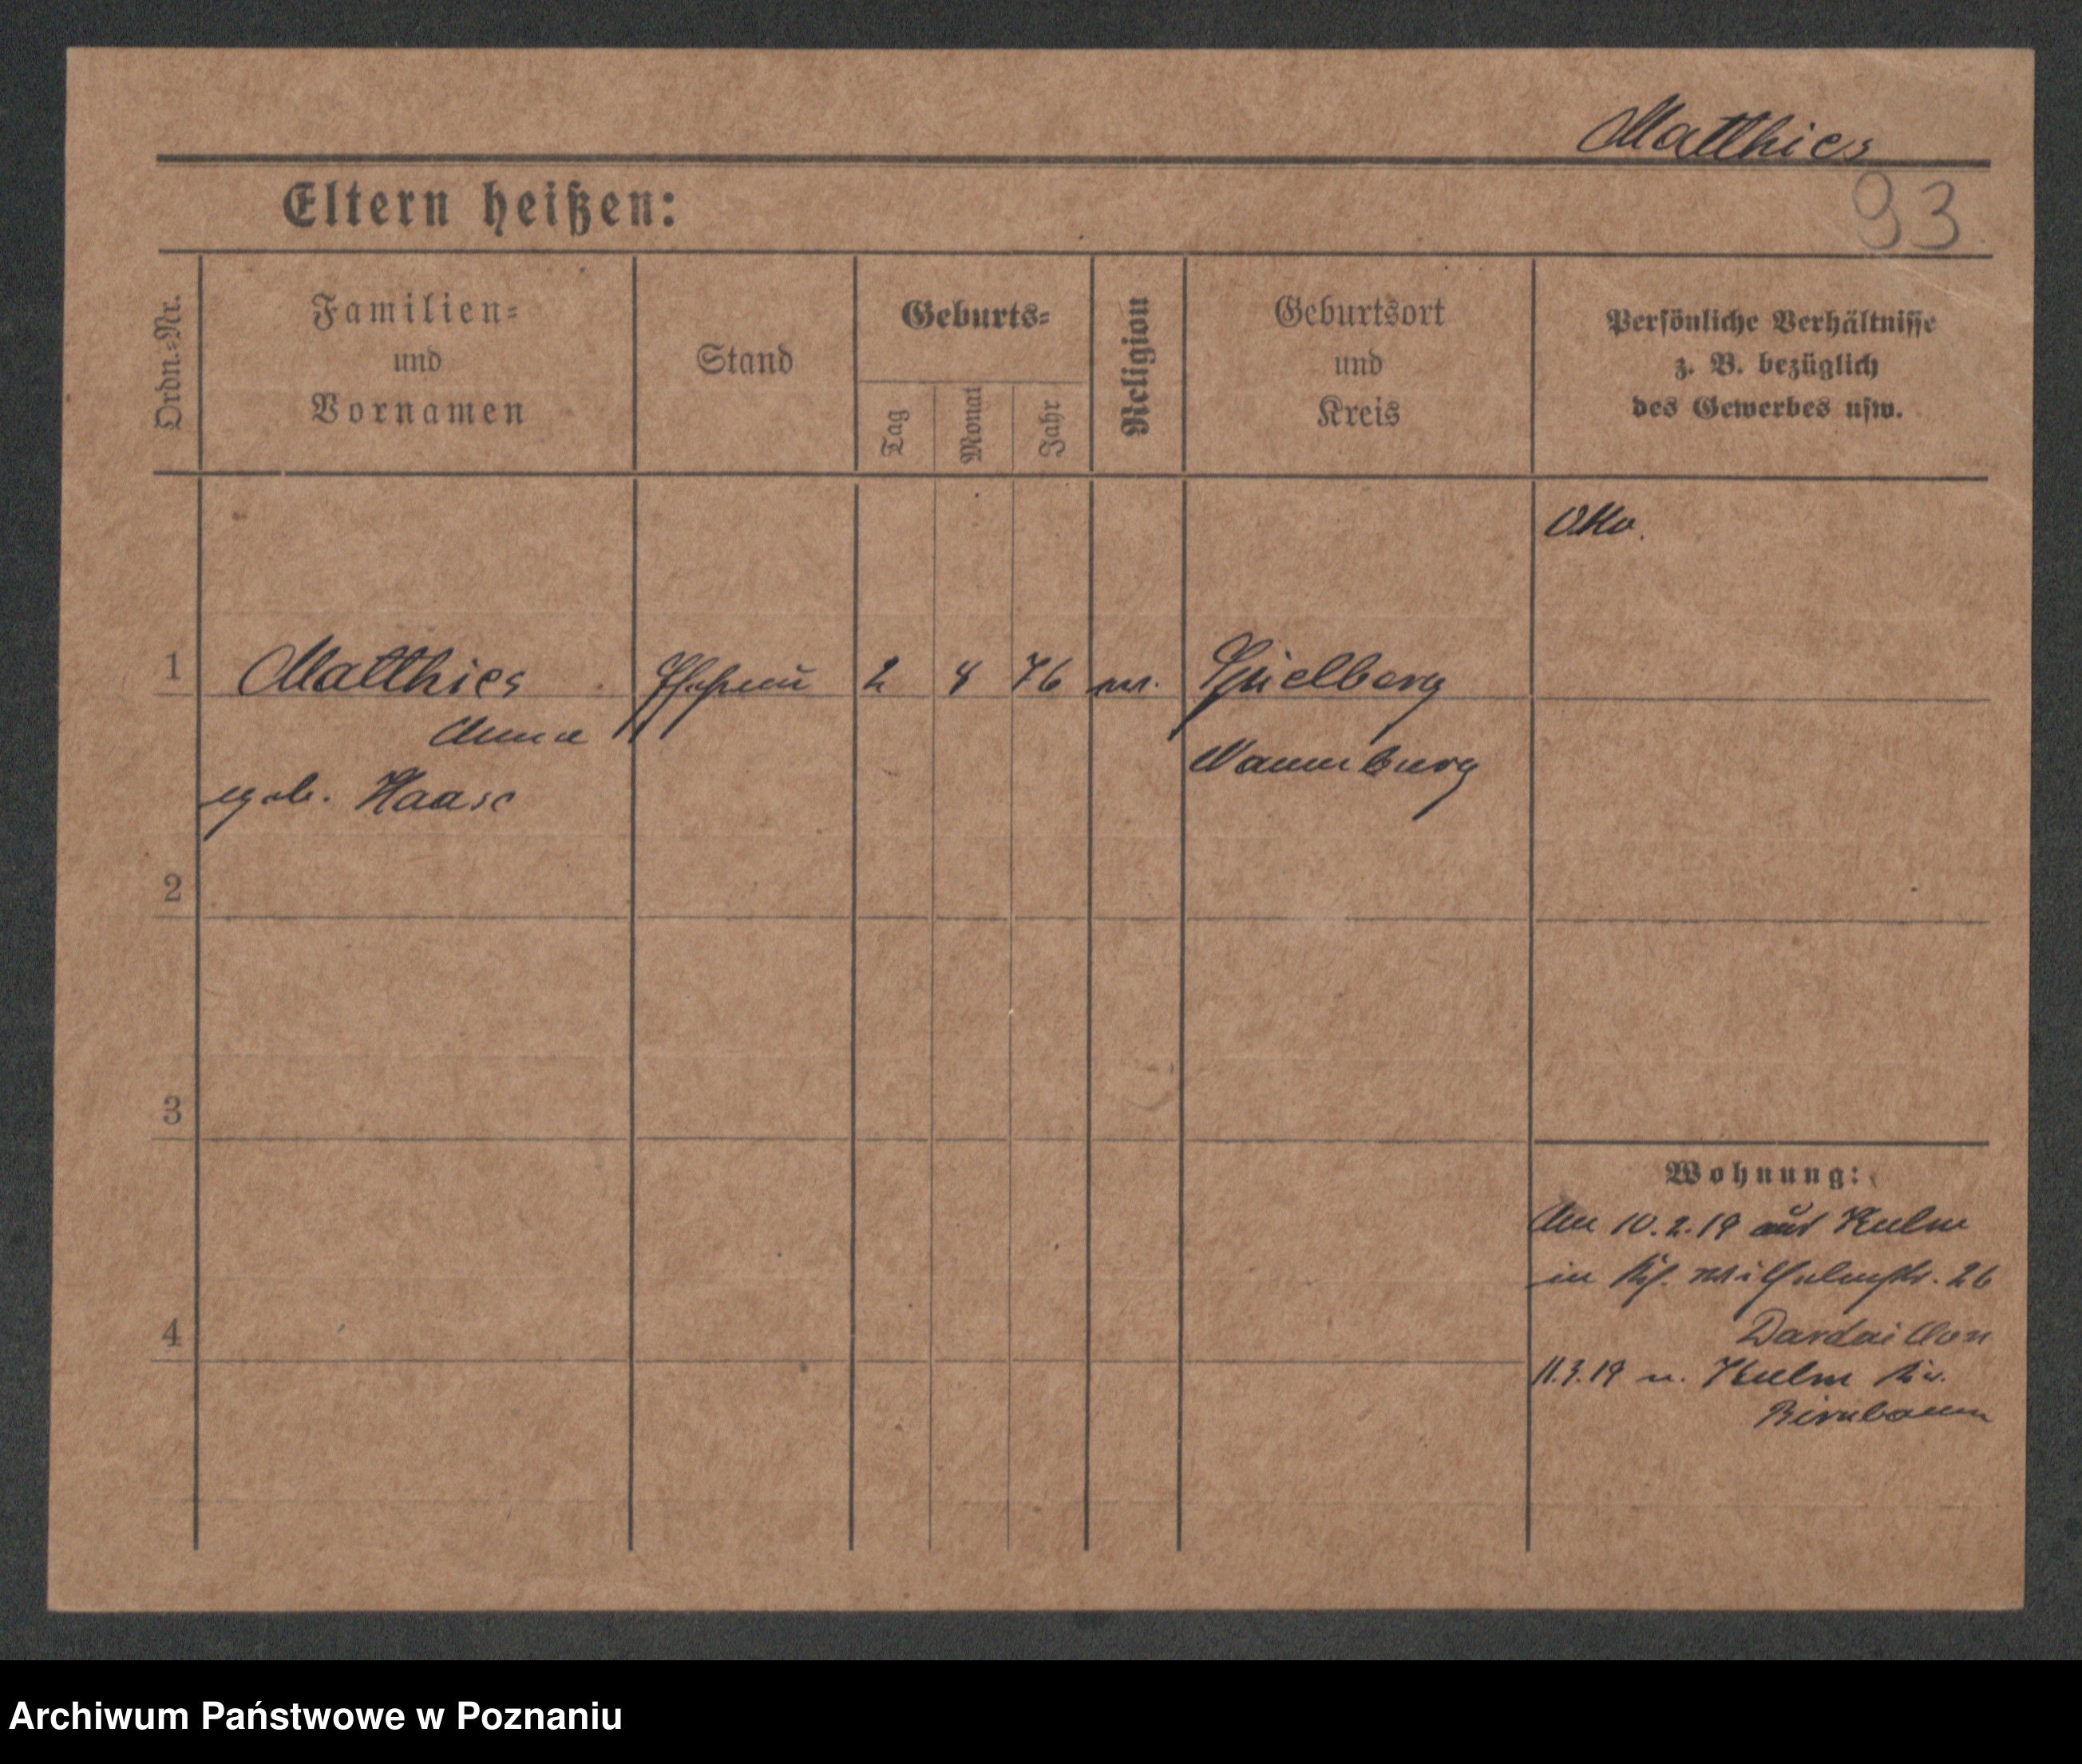 Matthies
Eltern heißen:
93
Ordn.=Nr.
Familien=
und
Vornamen
Stand
Geburts=
Tag
Monat
Jahr
Religion
Geburtsort
und
Kreis
Persönliche Verhältnisse
z. B. bezüglich
des Gewerbes usw.
1
Matthies
2
76
Spielberg
Anna
Naumburg
geb. Haase
2
3
Wohnung:
Am 10.2.19 aus Kulm
in Wilhelmstr. 26
Dardaillon
4
11.3.19 n. Kulm
Birnbaum
Archiwum Państwowe w Poznaniu